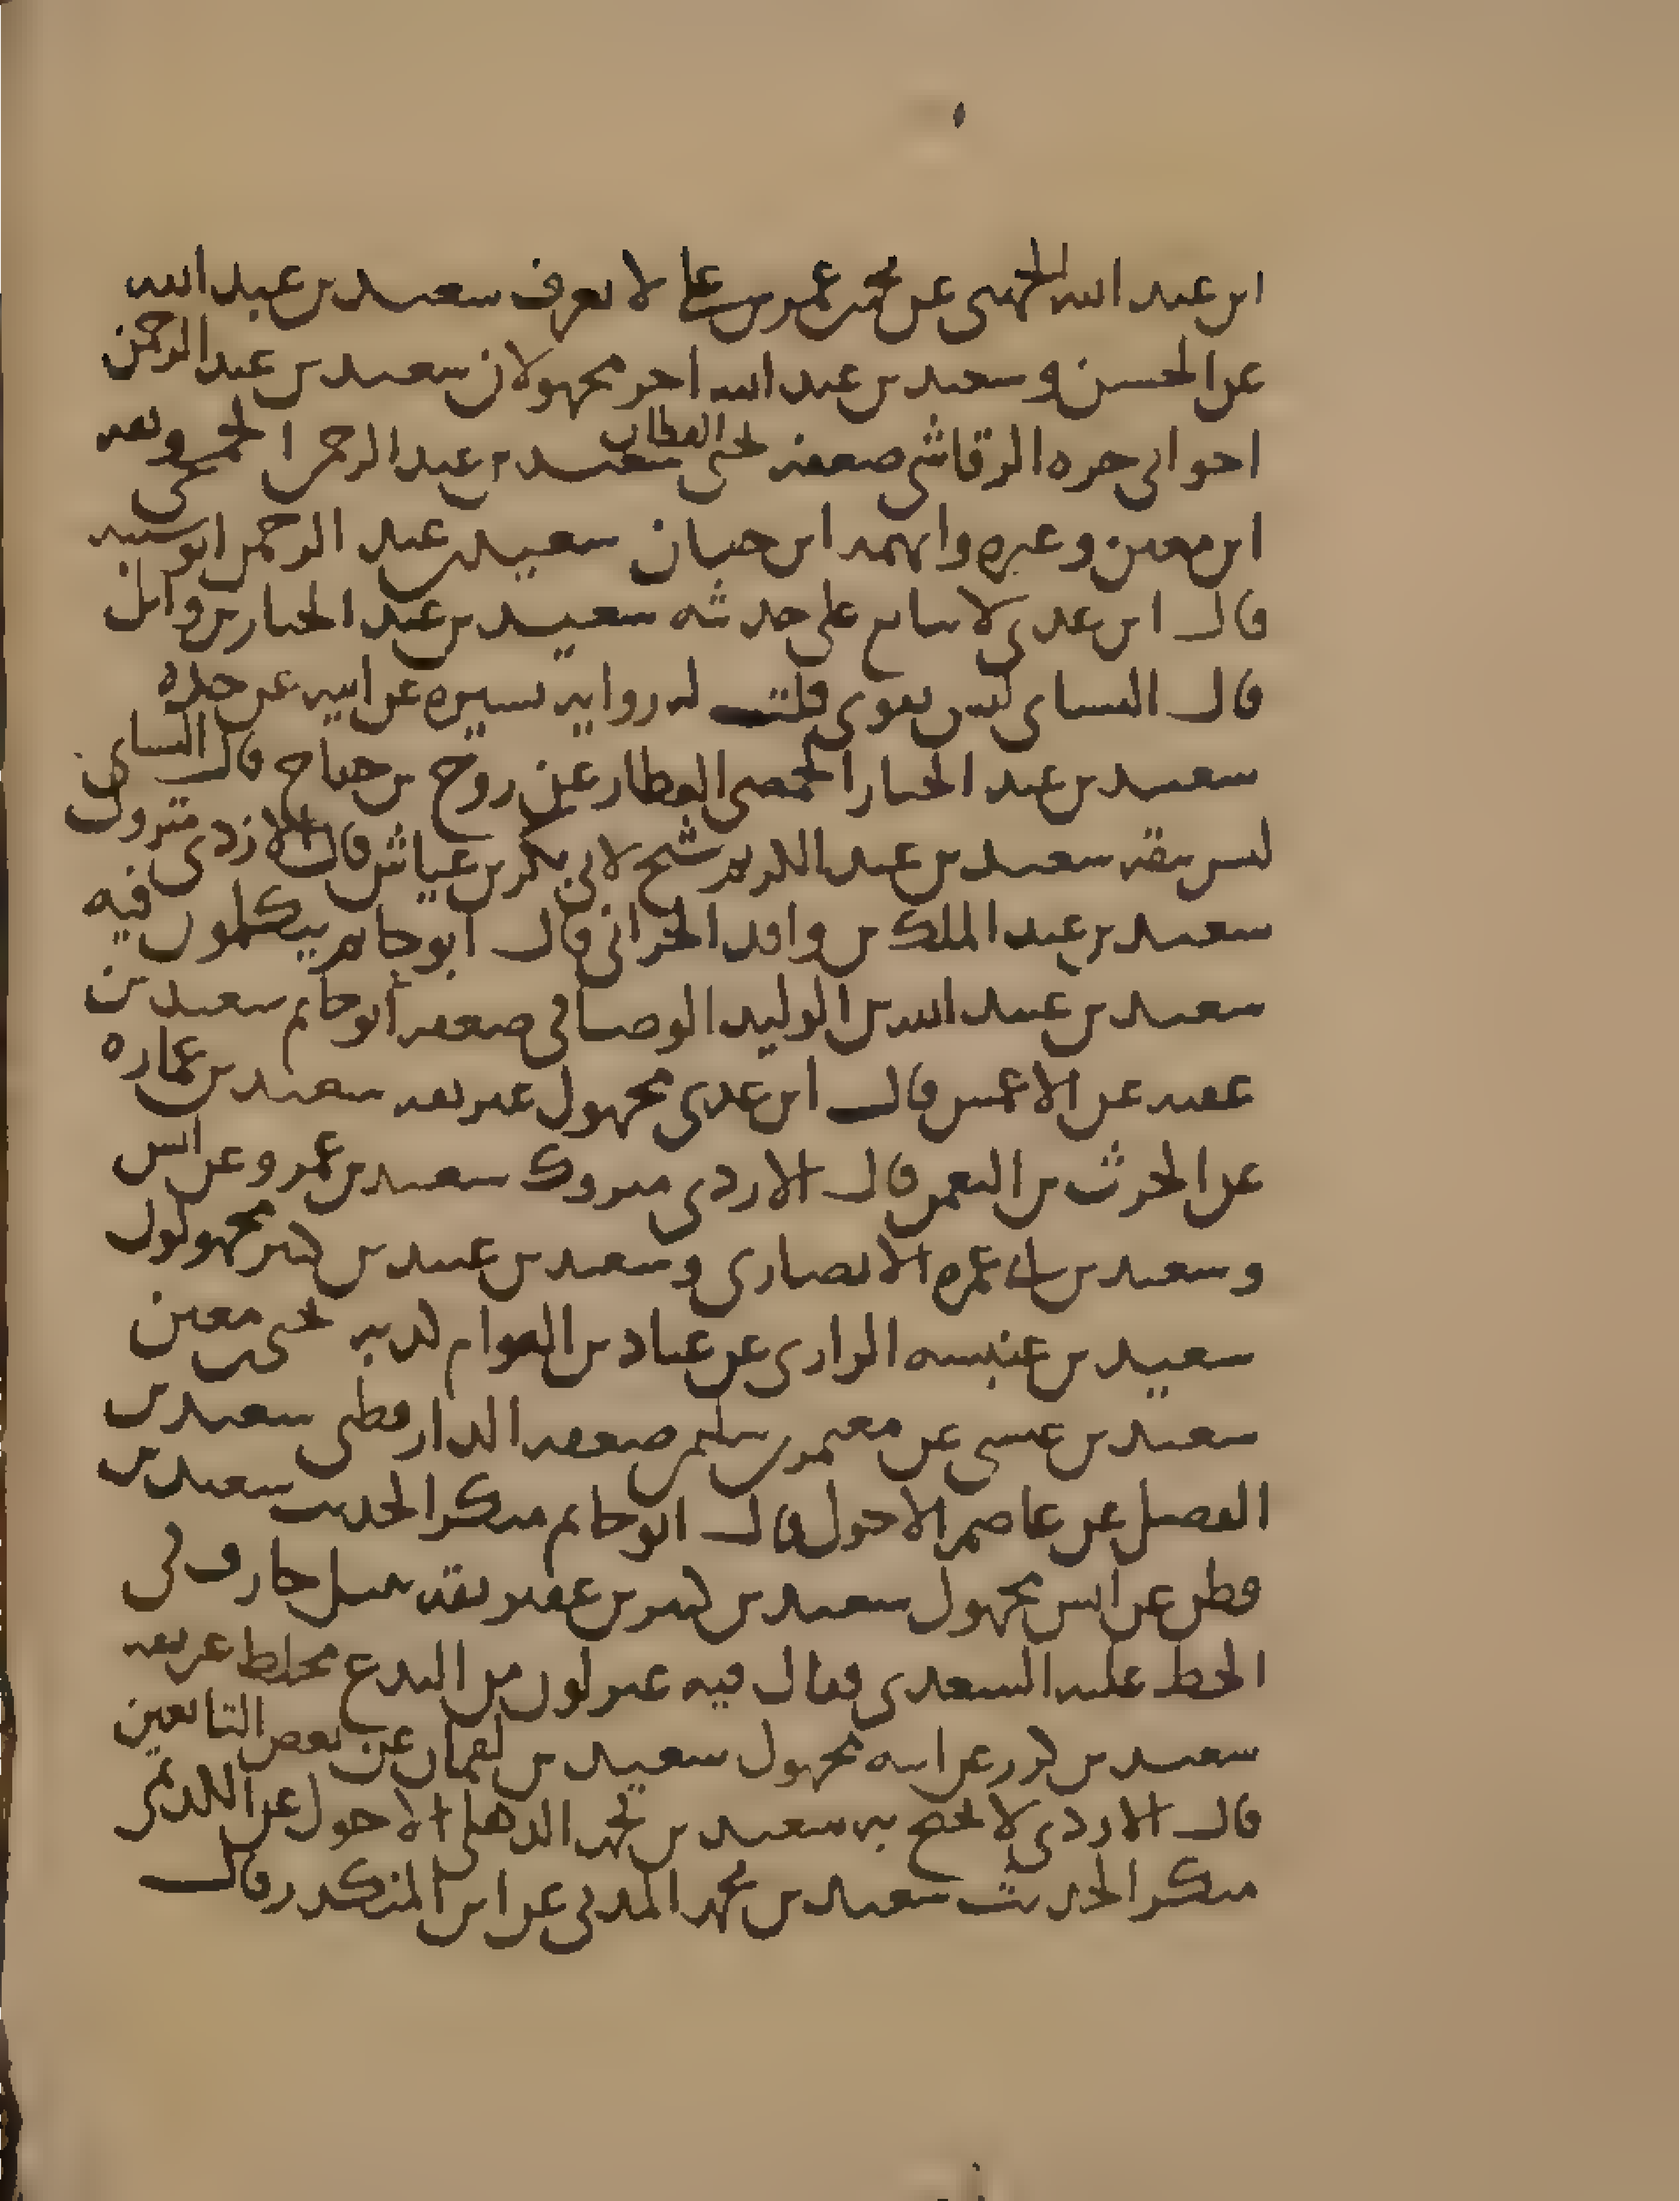 ابن عبد الله الجهني عن محمد بن عمر بن علي لا يعرف سعيد بن عبد الله
عن الحسن وسعيد بن عبد الله آخر مجهولان سعيد بن عبد الرحمن
اخو ابي حره الرقاشي ضعفه يحيى القطان سعيد بن عبد الرحمن الجمحي وثقه
ابن معين وغيره واتهمه ابن حبان سعيد بن عبد الرحمن ابو شيبه
قال ابن عدي لا يتابع على حديثه سعيد بن عبد الجبار بن وائل
قال النساي ليس بقوي قلت له رواية يسيره عن ابيه عن جده
سعيد بن عبد الجبار الحمصي العطار عن روح بن جناح قال النساي
ليس بثقه سعيد بن عبد الكريم شيخ لابي بكر بن عياش قال الازدي متروك
سعيد بن عبد الملك بن واقد الحراني قال ابو حاتم يتكلمون فيه
سعيد بن عبيد الله بن الوليد الوصافي ضعفه ابو حاتم سعيد بن
عقبه عن الاعمش قال ابن عدي مجهول غير ثقه سعيد بن عماره
عن الحرث بن النعمن قال الازدي متروك سعيد بن عمرو عن انس
وسعيد بن ابي عمره الانصاري وسعيد بن عبيد بن كثير مجهولون
سعيد بن عنبسه الرازي عن عباد بن العوام كذبه يحيى بن معين
سعيد بن عيسى عن معمر بن سليمن ضعفه الدارقطني سعيد بن
الفضل عن عاصم الاحول قال ابو حاتم منكر الحديث سعيد بن
قطن عن انس مجهول سعيد بن كثير بن عفير ثقه نبيل جازف في
الحط عليه السعدي فقال فيه غير لون من البدع مخلط غير ثقه
سعيد بن كرز عن ابيه مجهول سعيد بن لقمان عن بعض التابعين
قال الازدي لا يحتج به سعيد بن محمد الذهلي الاحول عن الكديمي
منكر الحديث سعيد بن محمد المدني عن ابن المنكدر قال